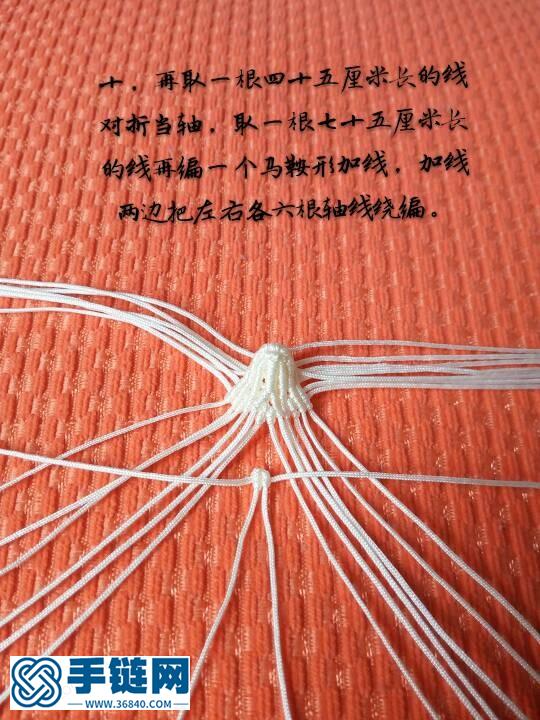 十，再取一根四十五厘米长的线
对折当轴，取一根七十五厘米长
的线再编一个马鞍形加线，加线
两边把左右各六根轴线绕编。
手链网
www.36840.com